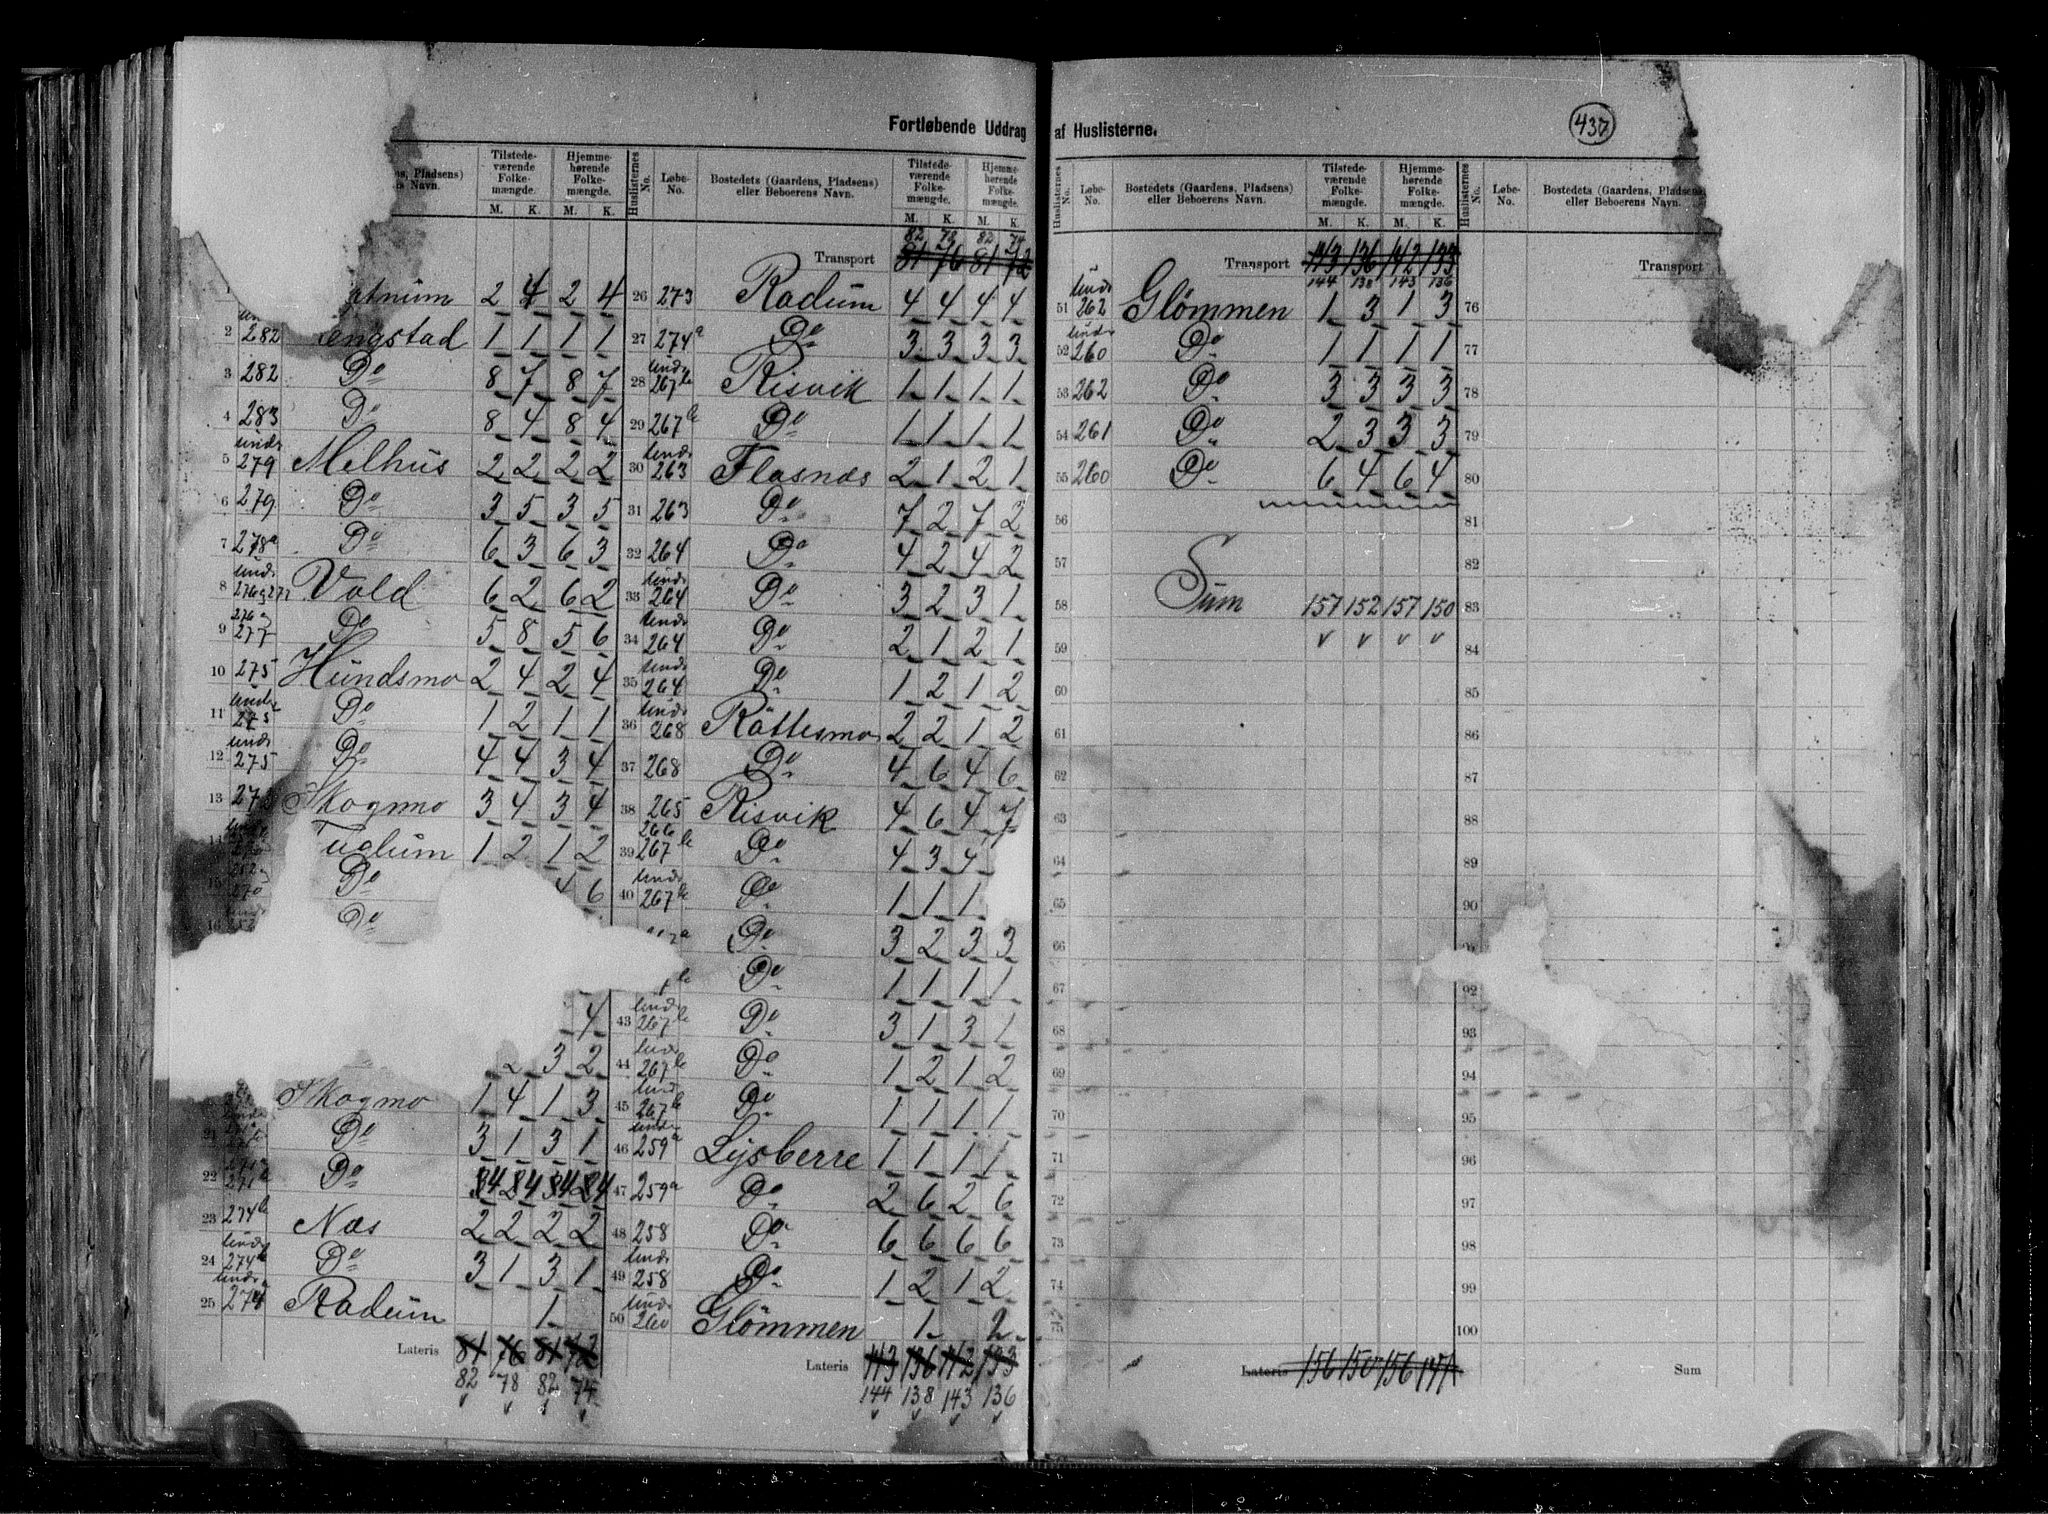 Fortløbende Uddrag af Huslisterne.
437
Tilstedeværende Folkemængde. Hjemmehørende Folkemængde.
M. K. M. K.
2 4 2 4
2 282 1 1 1 1
3 282 Do 8 7 8 7
4 283 Do 8 4 8 4
5 undr 279 Melhus 2 2 2 2
6 279 Do 3 5 3 5
7 278a Do 6 3 6 3
8 Vold 6 2 6 2
9 276 og 277 Do 5 8 5 6
10 275 Hundsmo 2 4 2 4
11 undr 275 Do 1 2 1 1
12 undr 275 Do 4 4 3 4
13 Skogmo 3 4 3 4
1 2 1 2
Do 6
Do
4
2 3 2
Skogmo 1 4 1 3
21 Do 3 1 3 1
22 Do
23 274b Næs 2 2 2 2
24 undr 274b Do 3 1 3 1
25 undr 274 Radum 1
Lateris 81 76 81 72
82 78 82 74
Huslisternes No. Løbe-No. Bostedets (Gaardens, Pladsens) eller Beboerens Navn. Tilstedeværende Folkemængde. Hjemmehørende Folkemængde.
M. K. M. K.
82 78 82 74
Transport 81 76 81 72
26 273 Radum 4 4 4 4
27 274a Do 3 3 3 3
28 undr 267b Risvik 1 1 1 1
29 267b Do 1 1 1 1
30 undr 263 Flasnæs 2 1 2 1
31 263 Do 7 2 7 2
32 264 Do 4 2 4 2
33 undr 264 Do 3 2 3 1
34 undr 264 Do 2 1 2 1
35 undr 264 Do 1 2 1 2
36 undr 268 Röttesmo 2 2 1 2
37 268 Do 4 6 4 6
38 265 Risvik 4 6 4 7
39 266 267b Do 4 3 4
40 undr 267b Do 1 1 1
Do 3 2 3 3
Do 1 1 1 1
43 undr 267b Do 3 1 3 1
44 undr 267b Do 1 2 1 2
45 undr 267b Do 1 1 1 1
46 undr 259a Lysberre 1 1 1 1
47 259a Do 2 6 2 6
48 258 Do 6 6 6 6
49 undr 258 Do 1 2 1 2
50 undr 260 Glömmen 1 2
Lateris 143 136 142 133
144 138 143 136
Huslisternes No. Løbe-No. Bostedets (Gaardens, Pladsens) eller Beboerens Navn. Tilstedeværende Folkemængde. Hjemmehørende Folkemængde.
M. K. M. K.
Transport 143 136 142 133
144 138 143 136
51 undr 262 Glömmen 1 3 1 3
52 undr 260 Do 1 1 1 1
53 262 Do 3 3 3 3
54 261 Do 2 3 3 3
55 260 Do 6 4 6 4
56
57
58 Sum 157 152 157 150
59
60
61
62
63
64
65
66
67
68
69
70
71
72
73
74
75
Lateris 156 150 156
Huslisternes No. Løbe-No. Bostedets (Gaardens, Pladsens) eller Beboerens Navn.
Transport
76
77
78
79
80
81
82
83
84
85
86
87
88
89
90
92
93
94
95
96
97
98
99
100
Sum